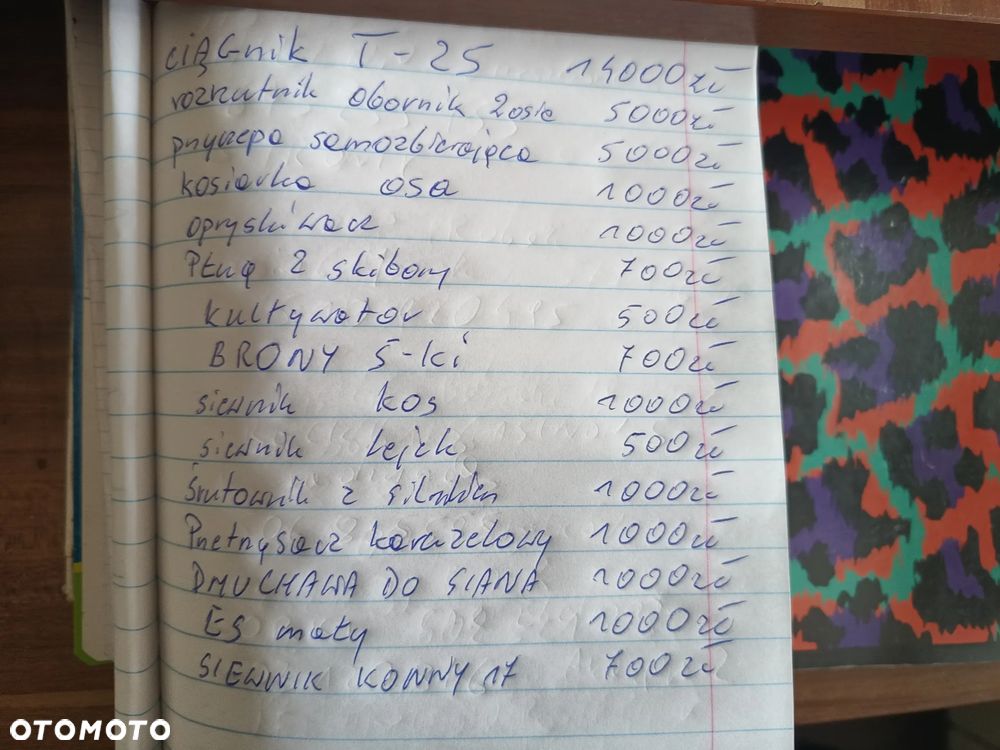 CIĄGnik T-25 14000zł
rozrzutnik obornik 2osie 5000zł
przyczepa samozbierająca 5000zł
kosiarka osa 1000zł
opryskiwacz 1000zł
Pług 2 skibowy 700zł
kultywator 500zł
BRONY 5-ki 700zł
siewnik kos 1000zł
siewnik Lejek 500zł
Śrutownik z silnikiem 1000zł
Przetrząsacz karuzelowy 1000zł
DMUCHAWA DO SIANA 1000zł
ES mały 1000zł
SIEWNIK KONNY 17 700zł
OTOMOTO